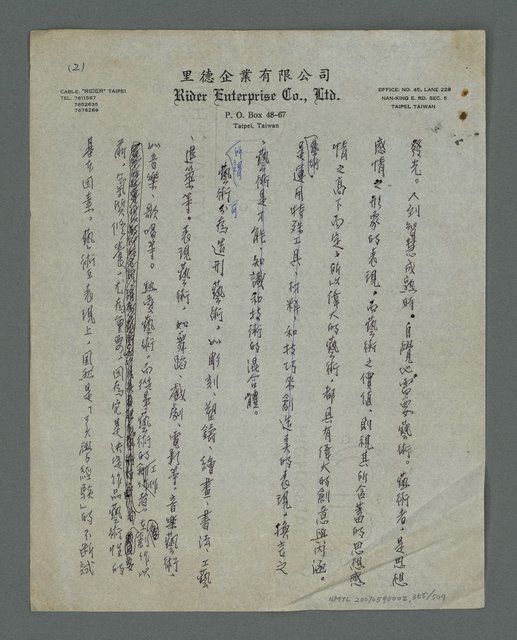 (2)
里德企業有限公司
Rider Enterprise Co., Ltd.
P. O. Box 48-67
Taipei, Taiwan
CABLE: "RIDER" TAIPEI
TEL. 7611567
7652635
7676269
OFFICE: NO. 45, LANE 228
NAN-KING E. RD. SEC. 5
TAIPEI, TAIWAN
發光。人到智慧成熟時。自覺地需要藝術。藝術者。是思想
感情之形象的表現。而藝術之價值、則視其所含蓄的思想感
情之高下而定。所以偉大的藝術、都具有偉大的創意與內涵。
藝術是運用特殊工具、材料和技巧來創造美的表現。換言之
、藝術是才能、知識和技術的混合體。
所謂藝術可分為造形藝術。如彫刻、塑鑄、繪畫、書法、工藝
、建築等。表現藝術。如舞蹈、戲劇、電影等。音樂藝術、
如音樂、歌唱等。而從事藝術的工作者在創作以
前、氣質修養、尤為重要、因為它是決定作品藝術性的
基本因素。藝術在表現上、固然是「美學經驗」的不斷試
NMTL 20070590002, 365/509